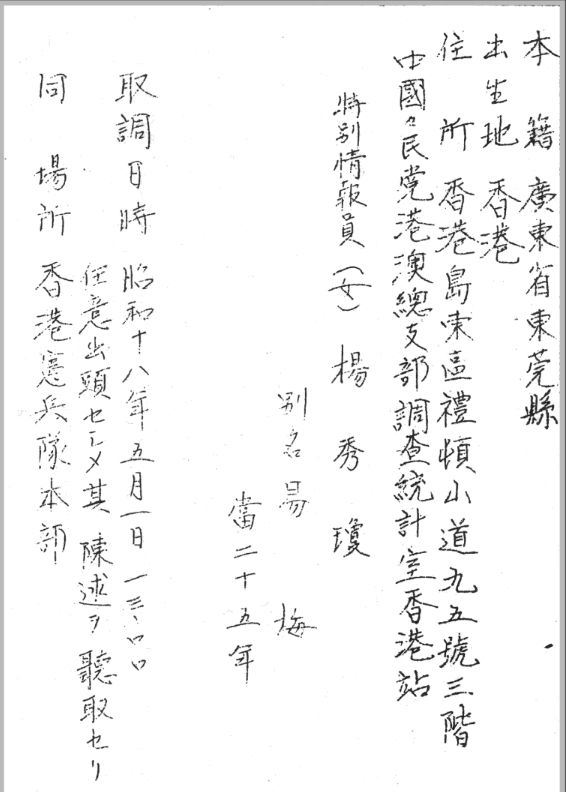 本籍 廣東省東莞縣
出生地 香港
住所 香港島東區禮頓山道九五號三階
中國々民党港澳總支部調查統計室香港站
特別情報員（女） 楊秀瓊
別名 易梅
當二十五年
取調日時 昭和十八年五月一日 一三、〇〇
任意出頭セシメ其陳述ヲ聽取セリ
同場所 香港憲兵隊本部